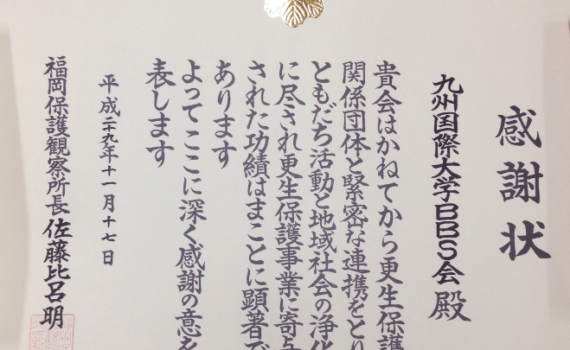 感謝状
九州国際大学BBS会 殿
貴会はかねてから更生保護
関係団体と緊密な連携をとり
ともだち活動と地域社会の浄化
に尽され更生保護事業に寄与
された功績はまことに顕著で
あります
よってここに深く感謝の意を
表します
平成二十九年十一月十七日
福岡保護観察所長 佐藤比呂明